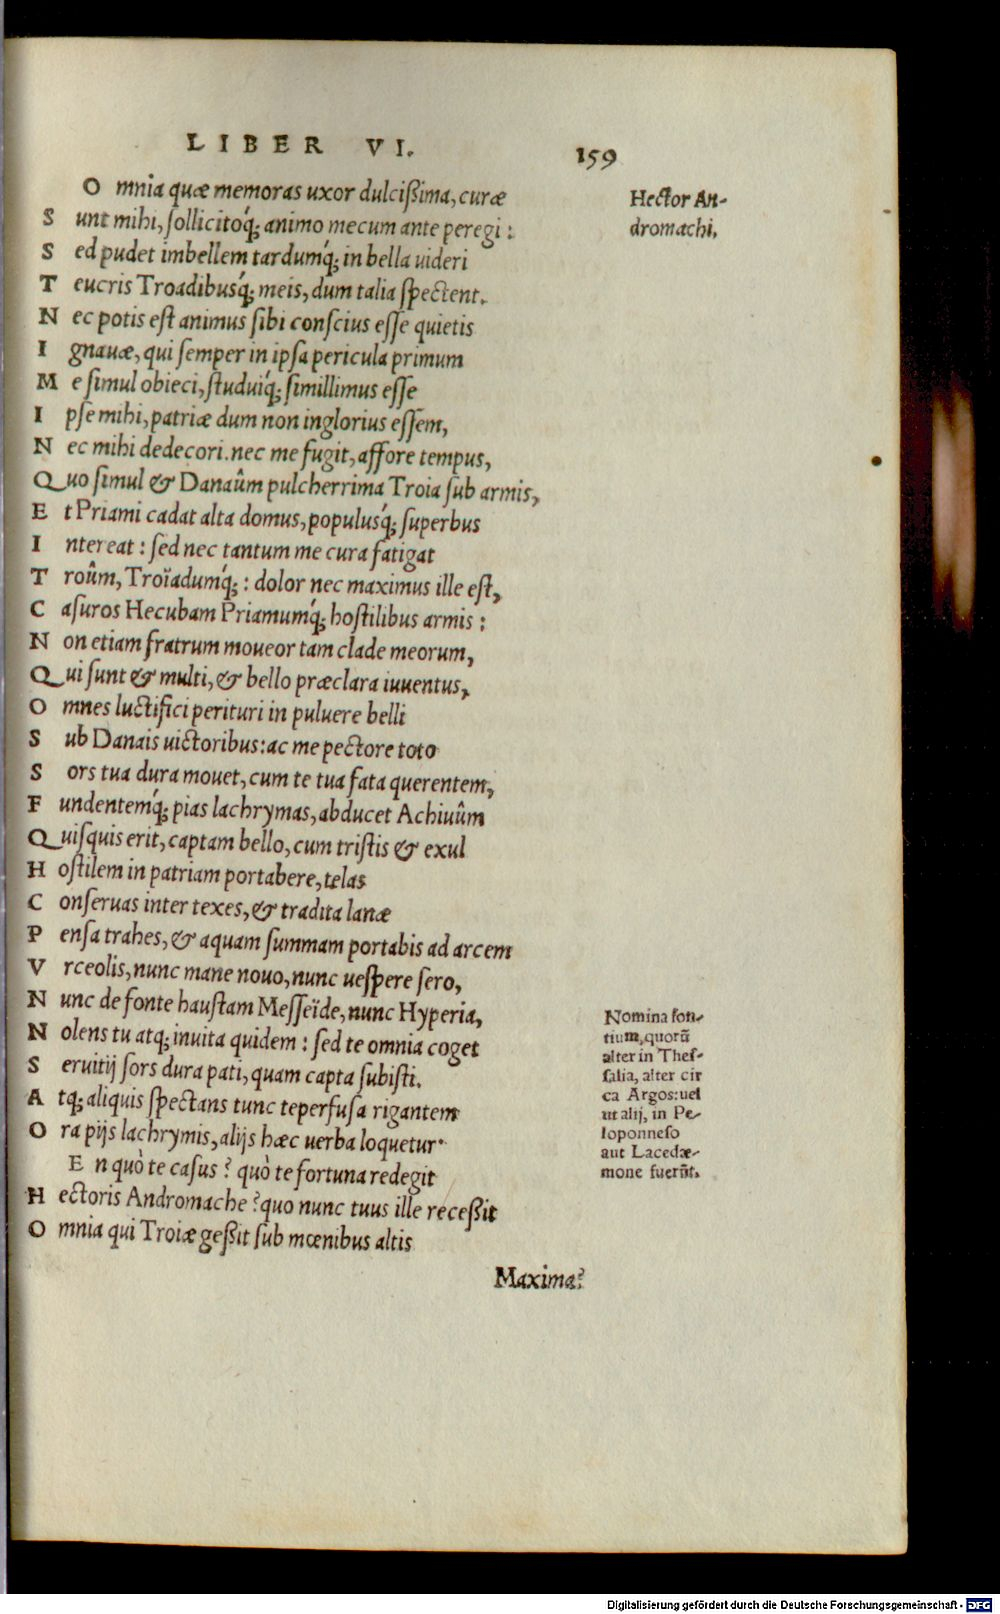 LIBER VI. 159
Omnia quæ memoras uxor dulcißima, curæ
Sunt mihi, sollicitoq́; animo mecum ante peregi:
Sed pudet imbellem tardumq́; in bella uideri
Teucris Troadibusq́; meis, dum talia spectent.
Nec potis est animus sibi conscius esse quietis
Ignauæ, qui semper in ipsa pericula primum
Me simul obieci, studuiq́; simillimus esse
Ipse mihi, patriæ dum non inglorius essem,
Nec mihi dedecori. nec me fugit, affore tempus,
Quo simul & Danaûm pulcherrima Troia sub armis,
Et Priami cadat alta domus, populusq́; superbus
Intereat: sed nec tantum me cura fatigat
Troûm, Troïadumq́;: dolor nec maximus ille est,
Casuros Hecubam Priamumq́; hostilibus armis:
Non etiam fratrum moueor tam clade meorum,
Qui sunt & multi, & bello præclara iuuentus,
Omnes luctifici perituri in puluere belli
Sub Danais uictoribus: ac me pectore toto
Sors tua dura mouet, cum te tua fata querentem,
Fundentemq́; pias lachrymas, abducet Achiuûm
Quisquis erit, captam bello, cum tristis & exul
Hostilem in patriam portabere, telas
Conseruas inter texes, & tradita lanæ
Pensa trahes, & aquam summam portabis ad arcem
Vrceolis, nunc mane nouo, nunc uespere sero,
Nunc de fonte haustam Messeïde, nunc Hyperia,
Nolens tu atq; inuita quidem: sed te omnia coget
Seruitij sors dura pati, quam capta subisti.
Atq; aliquis spectans tunc te perfusa rigantem
Ora pijs lachrymis, alijs hæc uerba loquetur.
En quò te casus? quò te fortuna redegit
Hectoris Andromache? quo nunc tuus ille receßit
Omnia qui Troiæ geßit sub mœnibus altis
Maxima?
Hector An-
dromachi.
Nomina fon-
tium, quorũ
alter in Thes-
salia, alter cir
ca Argos: uel
ut alij, in Pe-
loponneso
aut Lacedæ-
mone fuerũt.
Digitalisierung gefördert durch die Deutsche Forschungsgemeinschaft - DFG